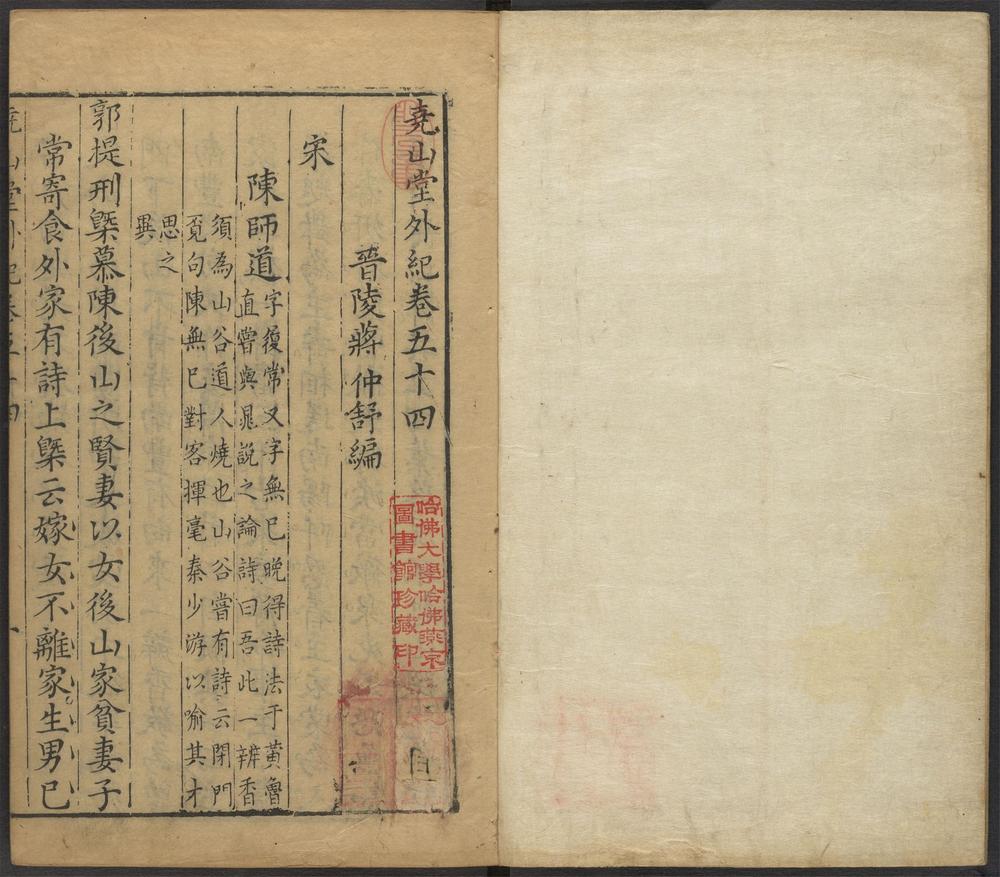 堯山堂外紀卷五十四
晉陵蔣仲舒編
宋
陳師道
字復常又字無已晚得詩法于黃魯
直嘗與晁說之論詩曰吾此一辨香
須為山谷道人燒也山谷嘗有詩云閉門
覓句陳無已對客揮毫秦少游以喻其才
思之
異
郭提刑槩慕陳後山之賢妻以女後山家貧妻子
常寄食外家有詩上槩云嫁女不離家生男已
哈佛大學哈佛燕京
圖書館珍藏印